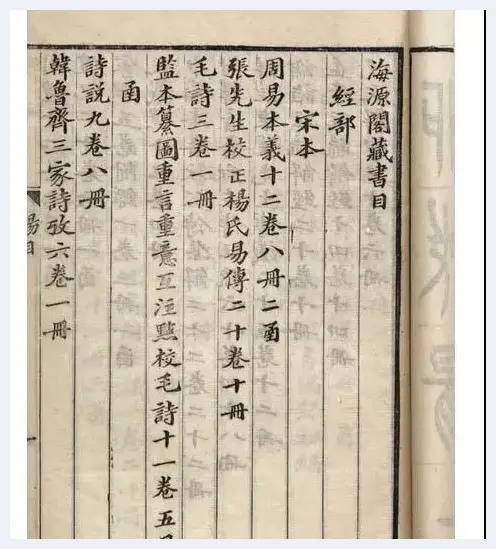 海源閣藏書目
經部
宋本
周易本義十二卷八冊二函
張先生校正楊氏易傳二十卷十冊
毛詩三卷一冊
監本纂圖重言重意互注點校毛詩十一卷五
函
詩説九卷八冊
韓魯齊三家詩攷六卷一冊